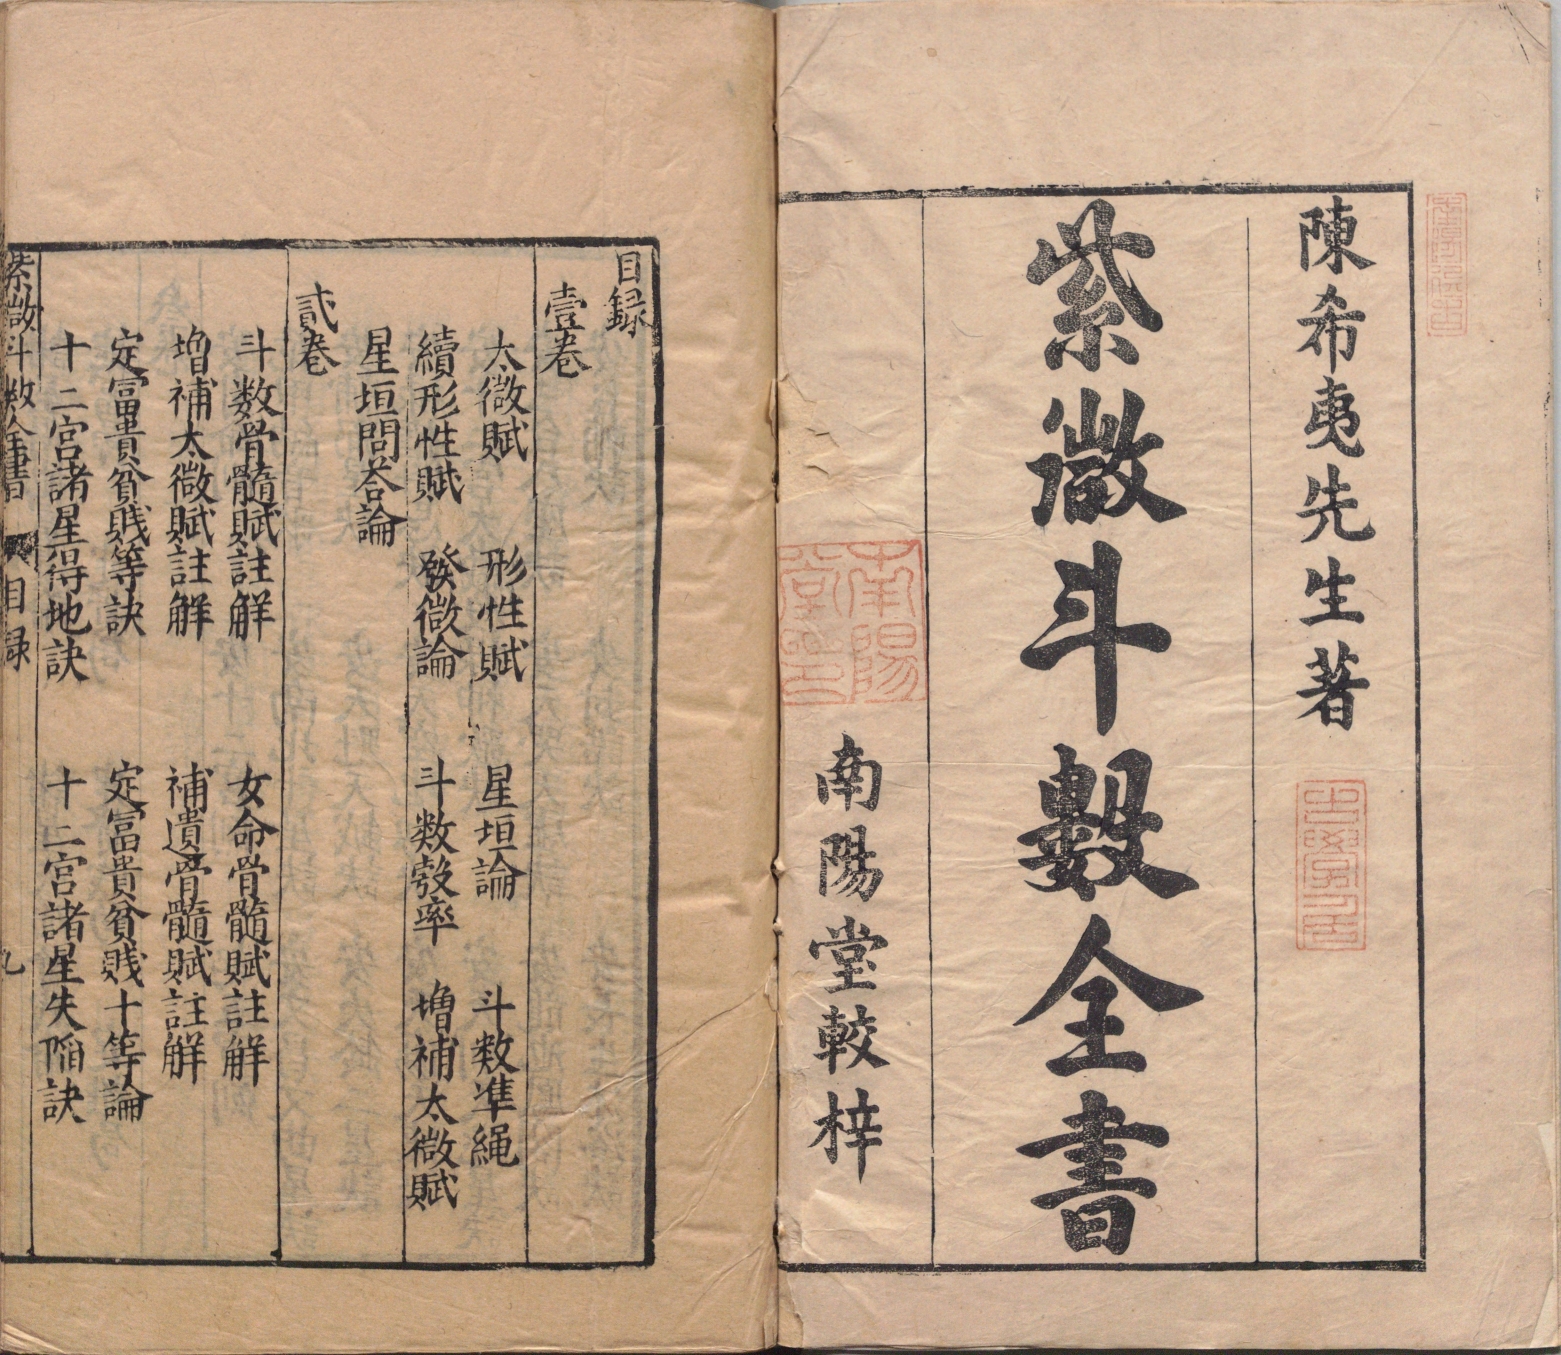 陳希夷先生著
紫微斗數全書
南陽
南陽堂較梓
目録
壹卷
太微賦 形性賦 星垣論 斗数準繩
續形性賦 發微論 斗数彀率 增補太微賦
星垣問荅論
貳卷
斗数骨髓賦註解 女命骨髓賦註解
增補太微賦註解 補遺骨髓賦註解
定富貴貧賤等訣 定富貴貧賤十等論
十二宮諸星得地訣 十二宮諸星失陷訣
紫微斗数全書 目録